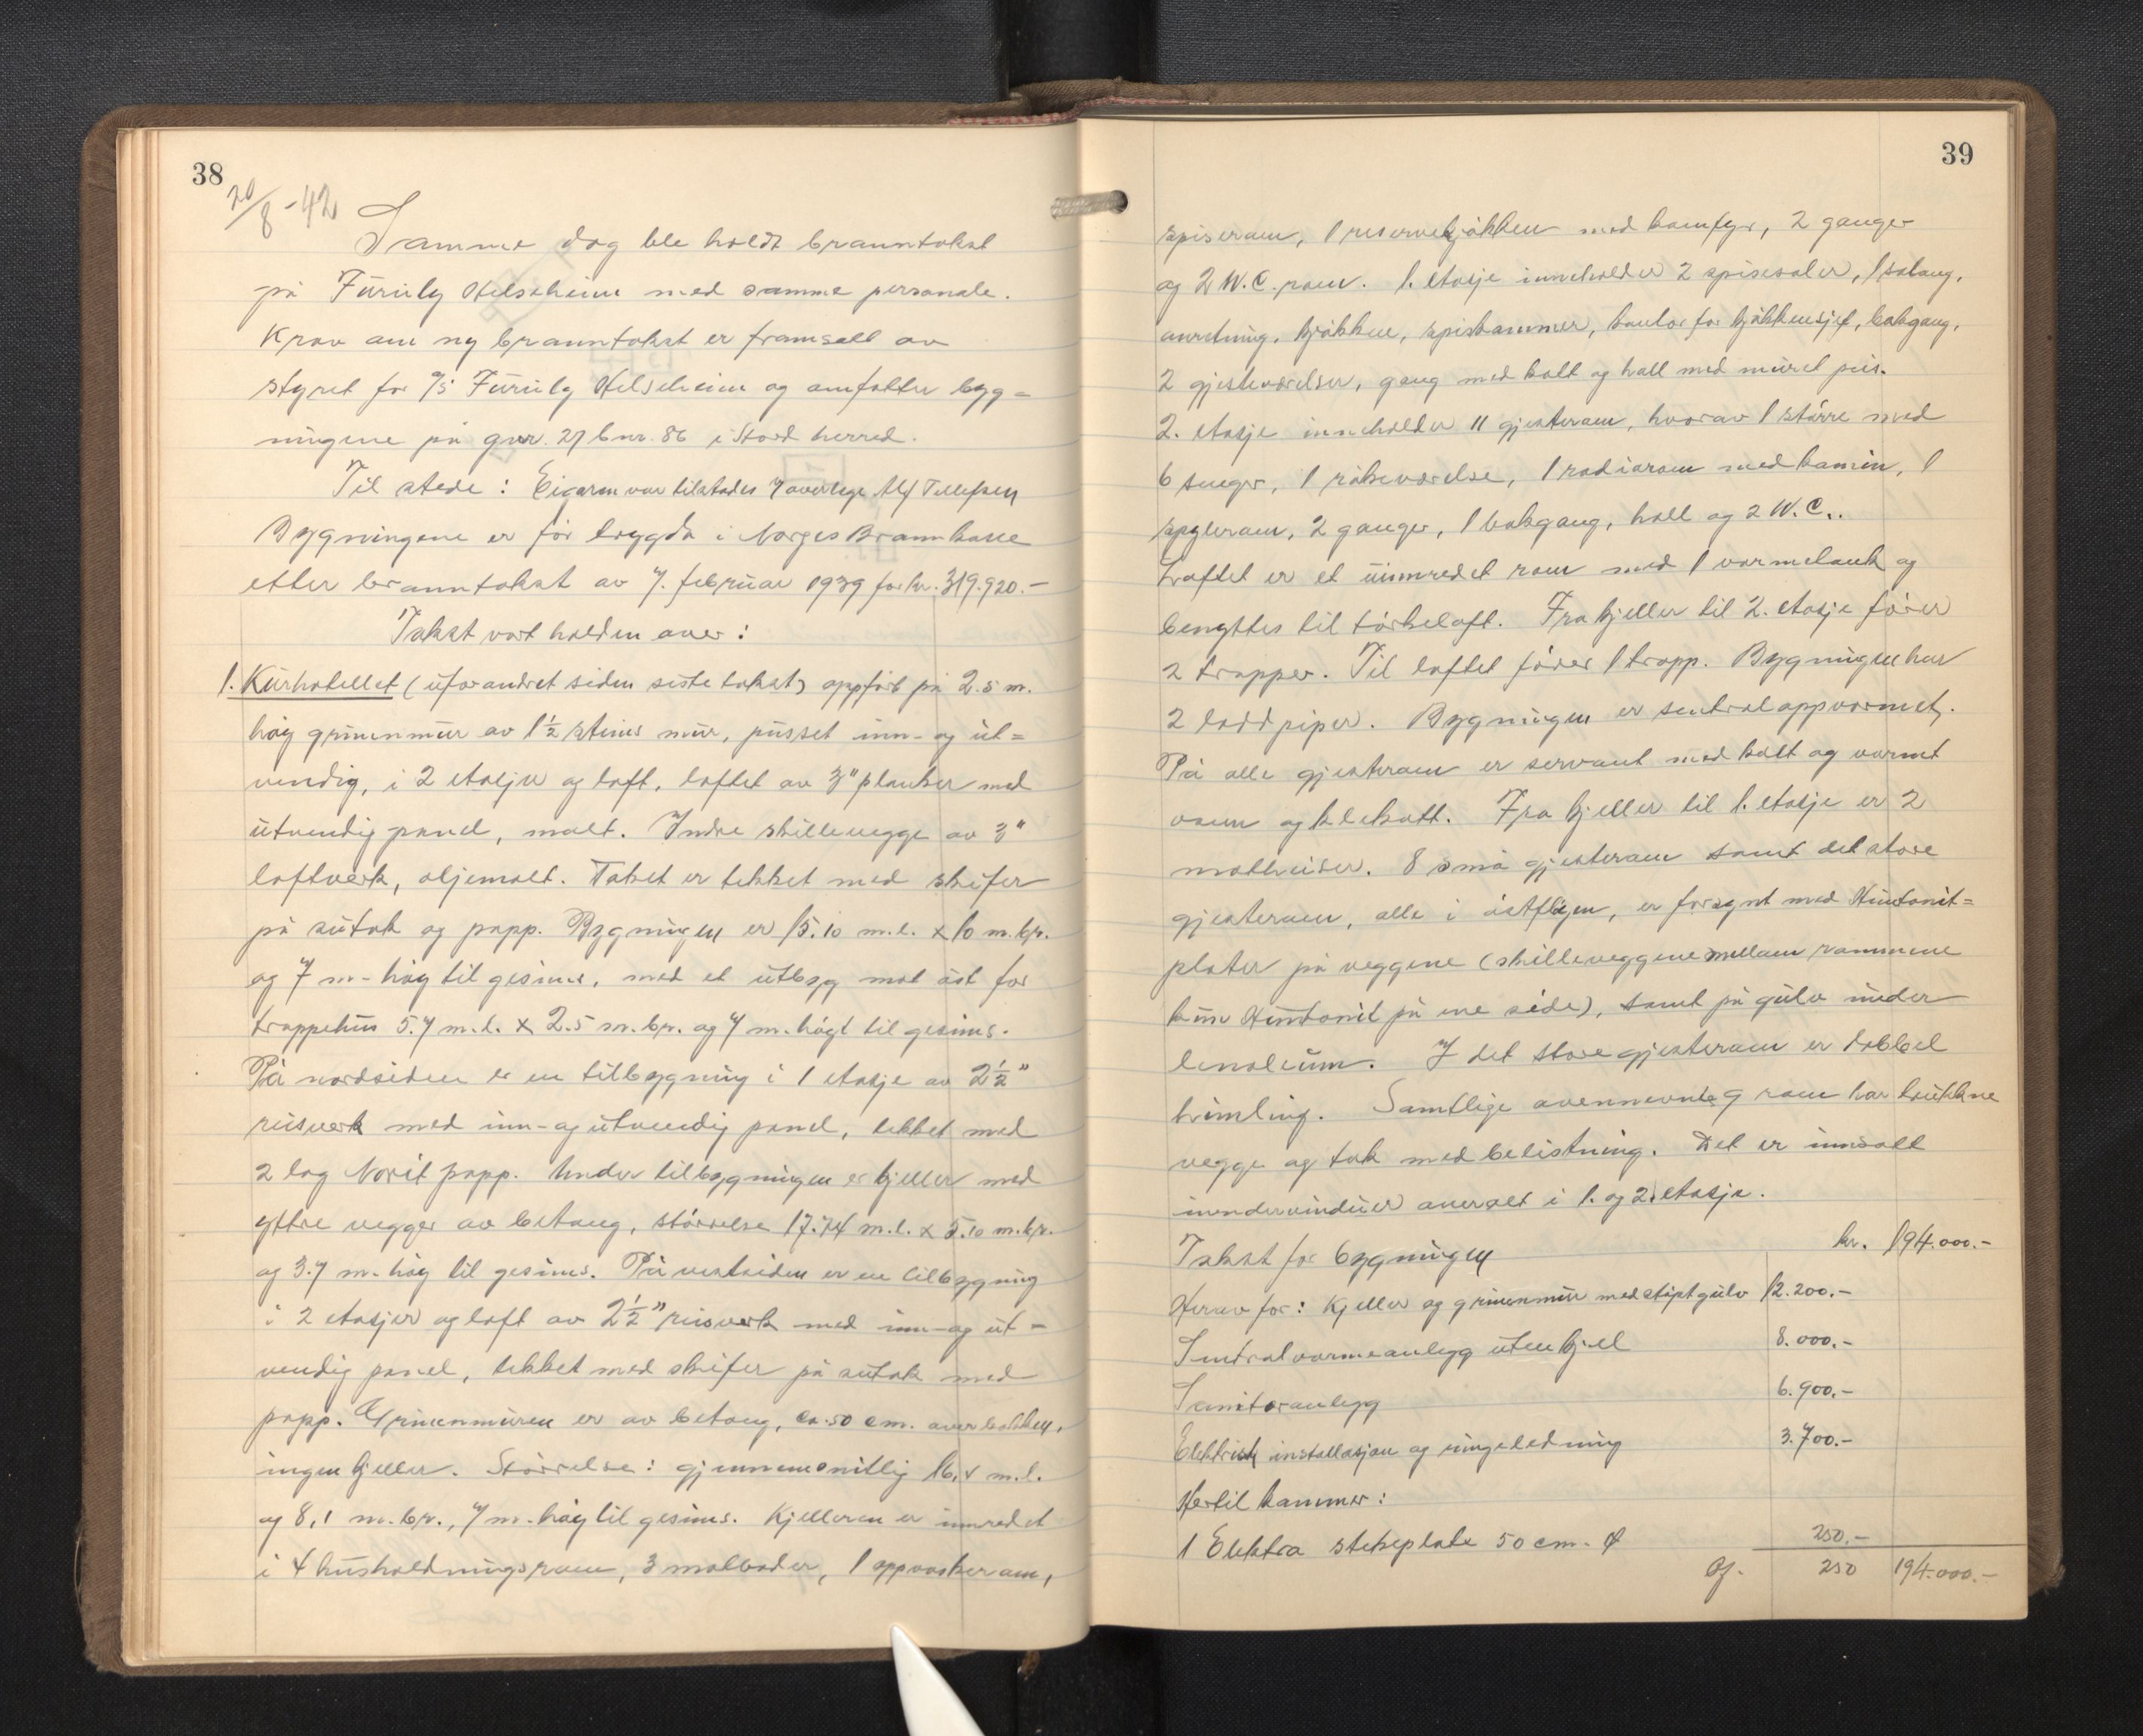 38
20/8-42
Samme dag ble holdt branntakst
på Furuly Helseheim med samme personale.
Krav om ny branntakst er framsatt av
styret for A/S Furuly Helseheim og omfatter byg=
ningene på gnr. 27 bnr. 86 i Stord herred.
Til stede: Eigaren var tilstades v/ overlege Alf Tellefsen
Bygningene er før trygda i Norges Brannkasse
etter branntakst av 7. februar 1939 for kr. 319.920.-
Takst vart halden over:
1. Kurhotellet (uforandret siden siste takst) oppført på 2.5 m.
høy grunnmur av 1½ steins mur, pusset inn- og ut=
vendig, i 2 etasjer og loft, loftet av 3" planker med
utvendig panel, malt. Indre skillevegge av 3"
loftverk, oljemalt. Taket er tekket med skifer
på sutak og papp. Bygningen er 15.10 m.l. x 10 m.br.
og 7 m. høy til gesims, med et utbyg mot øst for
trappehus 5.7 m.l. x 2.5 m.br. og 7 m. høgt til gesims.
På nordsiden er en tilbygning i 1 etasje av 2½"
reisverk med inn- og utvendig panel, tekket med
2 lag Norit papp. Under tilbygningen er kjeller med
yttre vegger av betong, størrelse 17.74 m.l. x 5.10 m.br.
og 3.7 m. høy til gesims. På vestsiden er en tilbygning
i 2 etasjer og loft av 2½" reisverk med inn- og ut-
vendig panel, tekket med skifer på sutak med
papp. Grunnmuren er av betong, ca. 50 cm. over bakken,
ingen kjeller. Størrelse: gjennemsnitlig 16,4 m.l.
og 8,1 m.br., 7 m. høy til gesims. Kjelleren er innredet
i 4 husholdningsrom, 3 matboder, 1 oppvaskerom,
39
spiserom, 1 reservekjøkken med komfyr, 2 ganger
og 2 W.C. rom. 1. etasje inneholder 2 spisesaler, 1 salong,
anretning, kjøkken, spiskammer, kontor for kjøkkensjef, bakgang,
2 gjesteværelser, gang med kott og hall med muret peis.
2. etasje inneholder 11 gjesterom, hvorav 1 større med
6 senger, 1 røkeværelse, 1 radiorom med kamin, 1
spylerom, 2 ganger, 1 bakgang, hall og 2 W.C..
Loftet er et uinnredet rom med 1 varmetank og
benyttes til tørkeloft. Fra kjeller til 2. etasje fører
2 trapper. Til loftet fører 1 trapp. Bygningen har
2 loddpiper. Bygningen er sentraloppvarmet.
På alle gjesterom er servant med kalt og varmt
vann og klekott. Fra kjeller til 1. etasje er 2
matheiser. 8 små gjesterom samt det store
gjesterom, alle i østfløyen, er forsynt med Huntonit=
plater på veggene (skilleveggene mellom rommene
kun Huntonit på ene side), samt på gulv under
linoleum. I det store gjesterom er dobbel
himling. Samtlige ovennevnte 9 rom har trukkne
vegge og tak med belistning. Det er innsatt
innervinduer overalt i 1. og 2. etasje.
Takst for bygningen kr. 194.000.-
Herav for: Kjeller og grunnmur med støpt gulv 12.200.-
Sentralvarmeanlegg uten kjel 8.000.-
Sanitæranlegg 6.900.-
Elektrisk installasjon og ringeledning 3.700.-
Hertil kommer:
1 Elektra stekeplate 50 cm. Ø 250.-
Of. 250 194.000.-